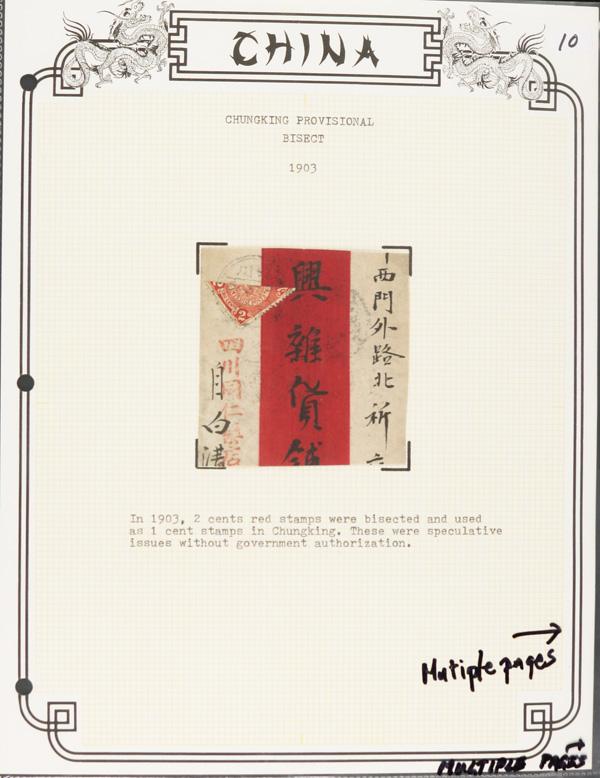 CHINA
10
CHUNGKING PROVISIONAL
BISECT
1903
西門外路北祈
興雜貨鋪
2
四川同仁
自白
In 1903, 2 cents red stamps were bisected and used
as 1 cent stamps in Chungking. These were speculative
issues without government authorization.
Mutiple pages
MULTIPLE PAGES